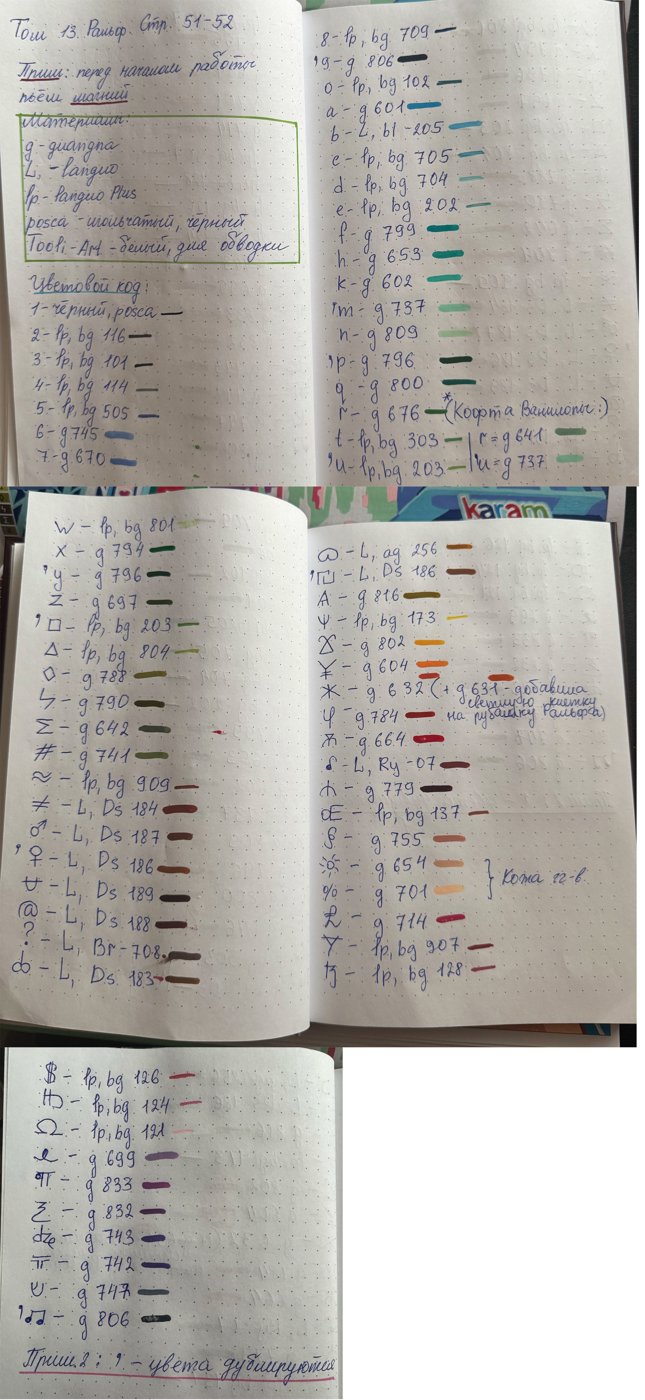 Том 13. Ральф. Стр. 51-52
Прим: перед началом работы
пьём магний
Материалы:
g - гуандпа
L, - ландио
lp - ландио Plus
posca - игольчатый, чёрный
Tooli-Art - белый, для обводки
Цветовой код:
1 - чёрный, posca
2 - lp, bg 116
3 - lp, bg 101
4 - lp, bg 114
5 - lp, bg 505
6 - g 745
7 - g 670
8 - lp, bg 709
'9 - g 806
0 - lp, bg 102
a - g 601
b - L, bl - 205
c - lp, bg 705
d - lp, bg 704
e - lp, bg 202
f - g 799
h - g 653
k - g 602
'm - g 737
n - g 809
'p - g 796
q - g 800
r - g 676 * (Коорта Ванилопы:)
t - lp, bg 303 | r = g 641
'u - lp, bg 203 | 'u = g 737
karam
w - lp, bg 801
x - g 794
'y - g 796
z - g 697
'□ - lp, bg 203
△ - lp, bg 804
◇ - g 788
ϟ - g 790
Σ - g 642
# - g 741
≈ - lp, bg 909
≠ - L, Ds 184
♂ - L, Ds 187
'♀ - L, Ds 186
- L, Ds 189
@ - L, Ds 188
? - L, Br - 708
- L, Ds 183
- L, ag 256
' - L, Ds 186
A - g 816
Ψ - lp, bg 173
- g 802
¥ - g 604
Ж - g 632 (+ g 631 - добавила
светлую клетку
на рубашку Ральфа)
φ - g 784
- g 664
- L, Ry - 07
- g 779
Œ - lp, bg 137
- g 755
☼ - g 654
% - g 701 } Кожа гг-в.
£ - g 714
Y - lp, bg 907
- lp, bg 128
$ - lp, bg 126
- lp, bg 124
Ω - lp, bg 121
- g 699
¶ - g 833
ξ - g 832
dze - g 743
π - g 742
- g 747
'♫ - g 806
Прим.2: ' - цвета дублируются